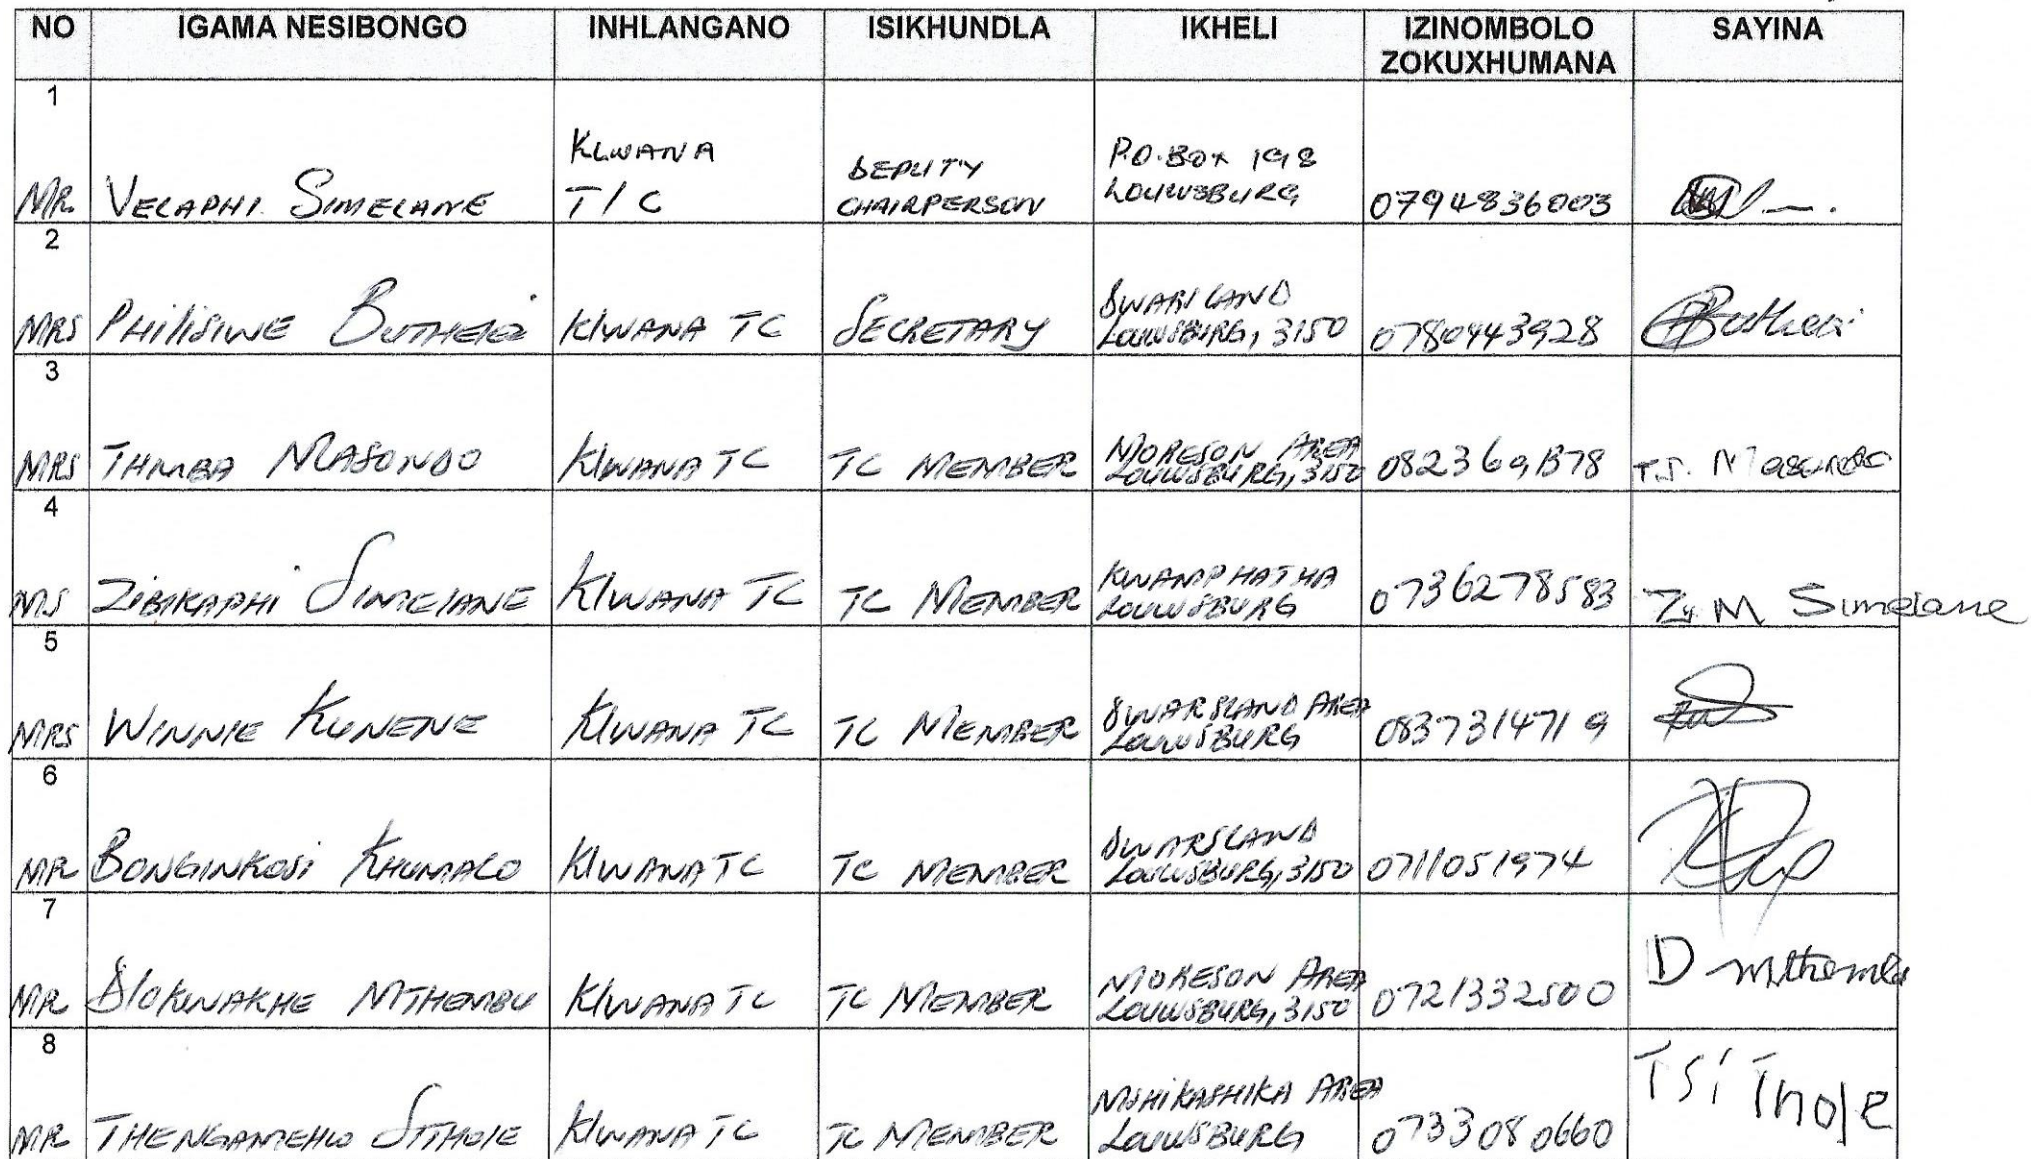 NO IGAMA NESIBONGO INHLANGANO ISIKHUNDLA IKHELI IZINOMBOLO ZOKUXHUMANA SAYINA
1
MR. VELAPHI SIMELANE KLWANA T/C DEPUTY CHAIRPERSON P.O. BOX 198 LOUWSBURG 0794836003
2
MRS PHILISIWE BUTHELEZI KLWANA TC SECRETARY LOUWSBURG, 3150 0780443928 Buthelezi
3
MRS THEMBA MASONDO KLWANA TC TC MEMBER MORESON AREA LOUWSBURG, 3150 T.S. Masondo
4
MS ZIBIKAPHI SIMELANE KLWANA TC TC MEMBER KWAMPHATHA LOUWSBURG 0736278583 Z. M Simelane
5
MRS WINNIE KUNENE KLWANA TC TC MEMBER DWARSLAND AREA LOUWSBURG 0837314719
6
MR BONGINKOSI KHUMALO KLWANA TC TC MEMBER DWARSLAND LOUWSBURG, 3150 0711051974
7
MR DLOKWAKHE MTHEMBU KLWANA TC TC MEMBER MORESON AREA LOUWSBURG, 3150 0721332500 D mthembu
8
MR SITHOLE KLWANA TC TC MEMBER MSHIKASHIKA AREA LOUWSBURG 0733080660 T SiThole